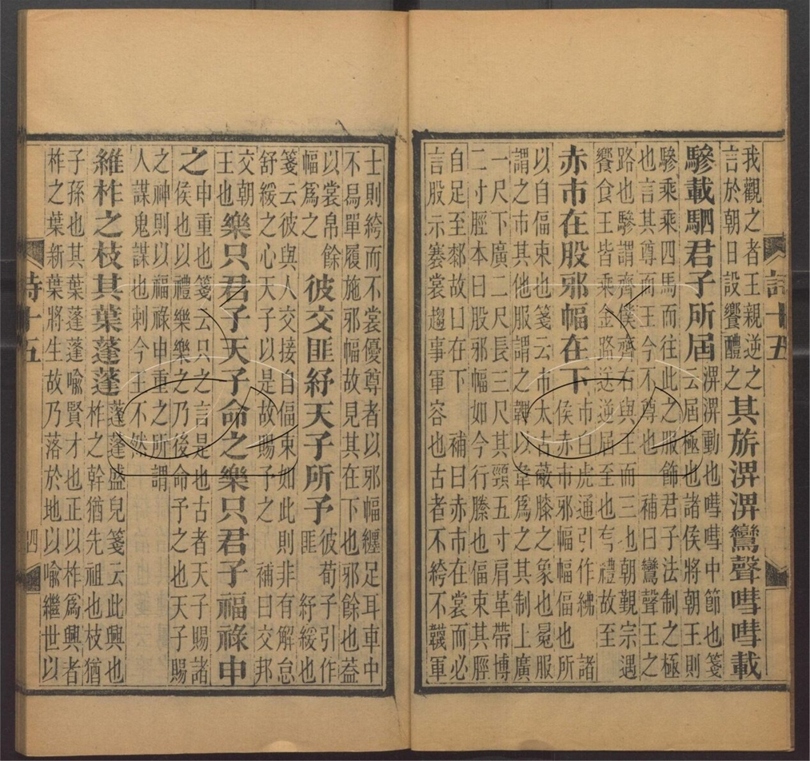 詩十五
我觀之者王親逆之
言於朝日設饗醴之
其旂淠淠鸞聲嘒嘒載
驂載駟君子所屆
淠淠動也嘒嘒中節也箋
云屆極也諸侯將朝王則
驂乘乘四馬而往此之服飾君子法制之極
也言其尊而王今不尊也 補曰鸞聲王之
路也驂謂齊僕齊右與王而三也朝覲宗遇
饗食王皆乘金路送逆屆至也禮故至
赤巿在股邪幅在下
巿白虎通引作紼 諸
侯赤巿邪幅幅偪也所
以自偪束也箋云巿太古蔽膝之象也冕服
謂之巿其他服謂之韠以韋爲之其制上廣
一尺下廣二尺長三尺其頸五寸肩革帶博
二寸脛本曰股邪幅如今行縢也偪束其脛
自足至郄故曰在下 補曰赤巿在裳而必
言股示褰裳趨事軍容也古者不絝不韈軍
士則絝而不裳優尊者以邪幅纏足耳車中
不舄單履施邪幅故見其在下也邪餘也葢
以裳帛餘
幅爲之
彼交匪紓天子所予
彼荀子引作
匪 紓緩也
箋云彼與人交接自偪束如此則非有解怠
舒緩之心天子以是故賜予之 補曰交邦
交朝
王也
樂只君子天子命之樂只君子福祿申
之
申重也箋云只之言是也古者天子賜諸
侯也以禮樂樂之乃後命予之也天子賜
之神則以福祿申重之所謂
人謀鬼謀也刺今王不然
維柞之枝其葉蓬蓬
蓬蓬盛皃箋云此興也
柞之幹猶先祖也枝猶
子孫也其葉蓬蓬喩賢才也正以柞爲興者
柞之葉新葉將生故乃落於地以喩繼世以
詩十五
四